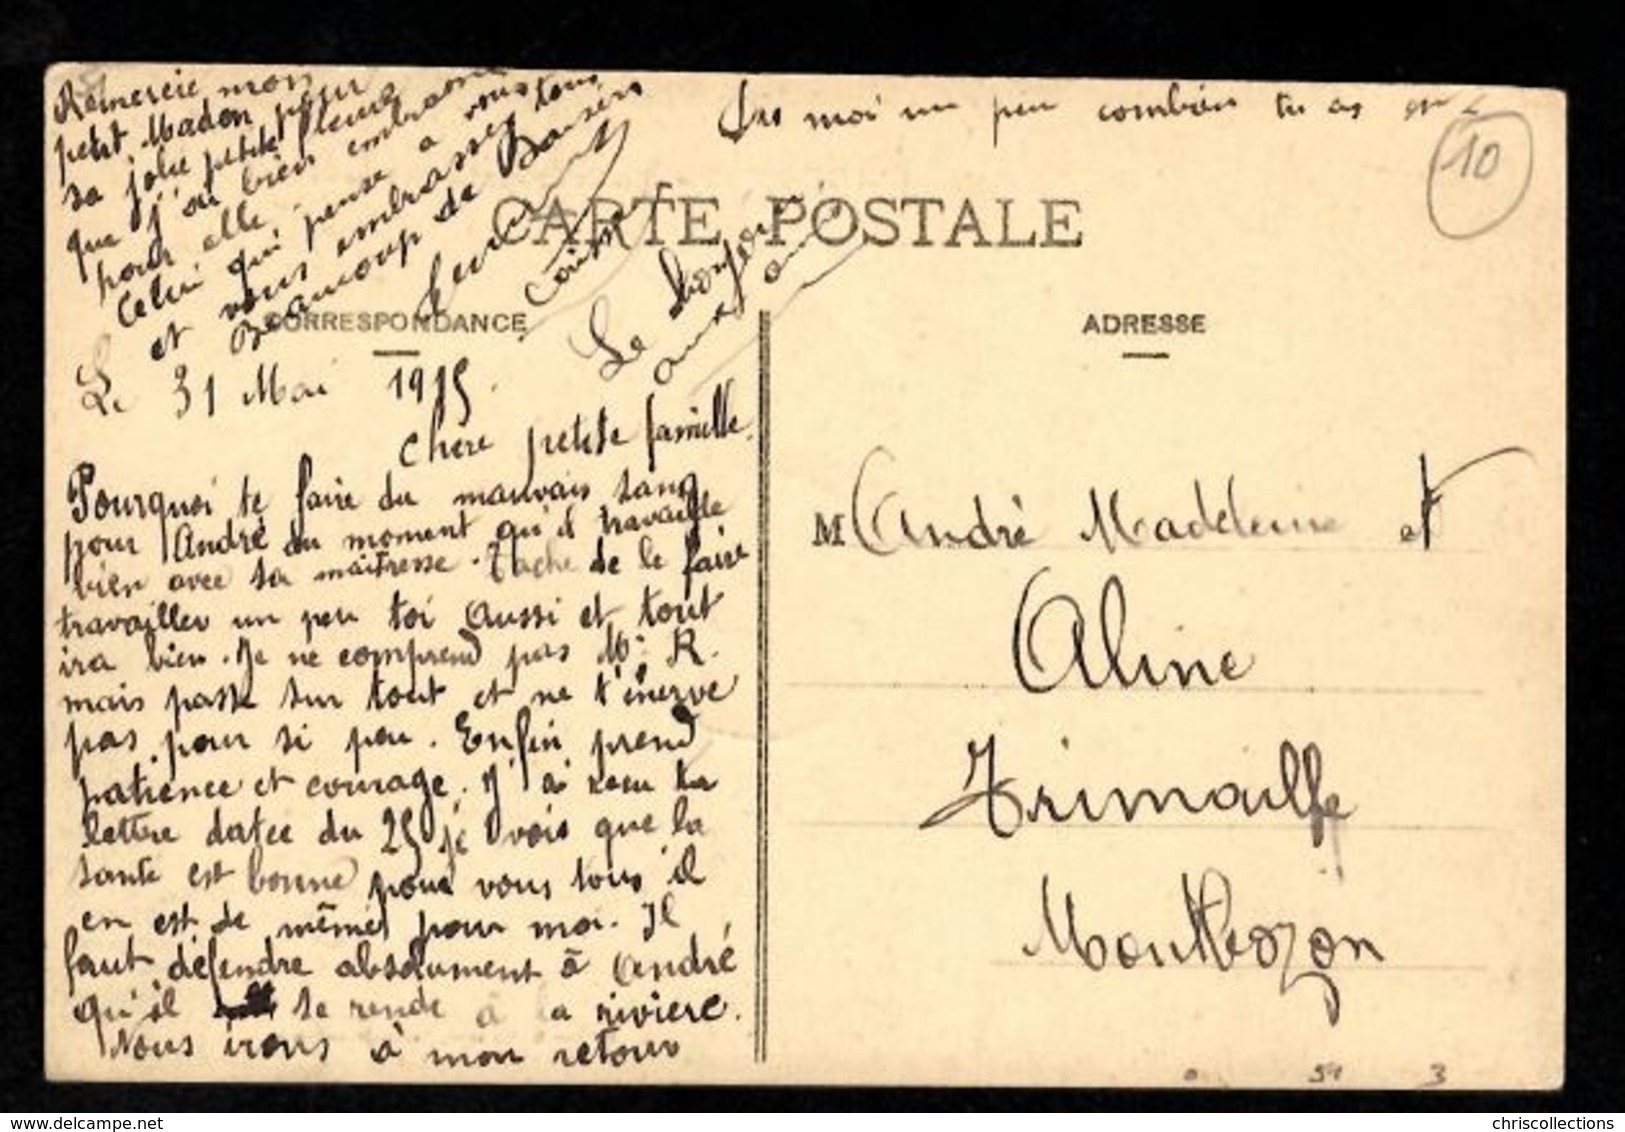 Remercie mon
petit Madon pour
sa jolie petite fleur
que j'ai bien embrassé
pour elle.
Celui qui pense a vous
et vous embrasse tous
Beaucoup de Baisers
Cousin
Le Bonjour
aux amis
Dis moi un peu combien tu as
10
CARTE POSTALE
CORRESPONDANCE
ADRESSE
Le 31 Mai 1915.
Chère petite famille.
Pourquoi te faire du mauvais sang
pour André du moment qu'il travaille
bien avec sa maitresse. Tache de le faire
travailler un peu toi aussi et tout
ira bien. Je ne comprend pas Mr R.
mais passe sur tout et ne t'énerve
pas pour si peu. Enfin prend
patience et courage. J'ai recu ta
lettre datée du 25 je vois que la
santé est bonne pour vous tous il
en est de même pour moi. Il
faut défendre absolument à André
qu'il se rende à la riviere.
Nous irons à mon retour
M André Maddeine et
Aline
Trimaille
Montbozon
51 3
chriscollections